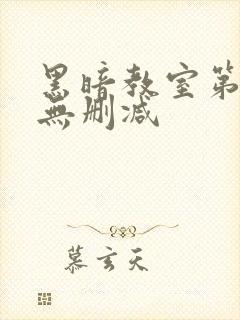 黑暗教室第
無删减
慕玄天